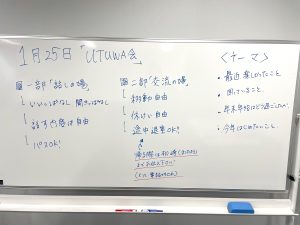 1月25日「UTUWA会」
第一部「話しの場」
いいっぱなし 聞きっぱなし
話す内容は自由
パスOK!
第二部「交流の場」
移動自由
休けい自由
途中退室OK!
帰る際は
<テーマ>
・最近楽しかったこと
・困っていること
・年末年始はどう過ごしたか
・今年はじめたいこと